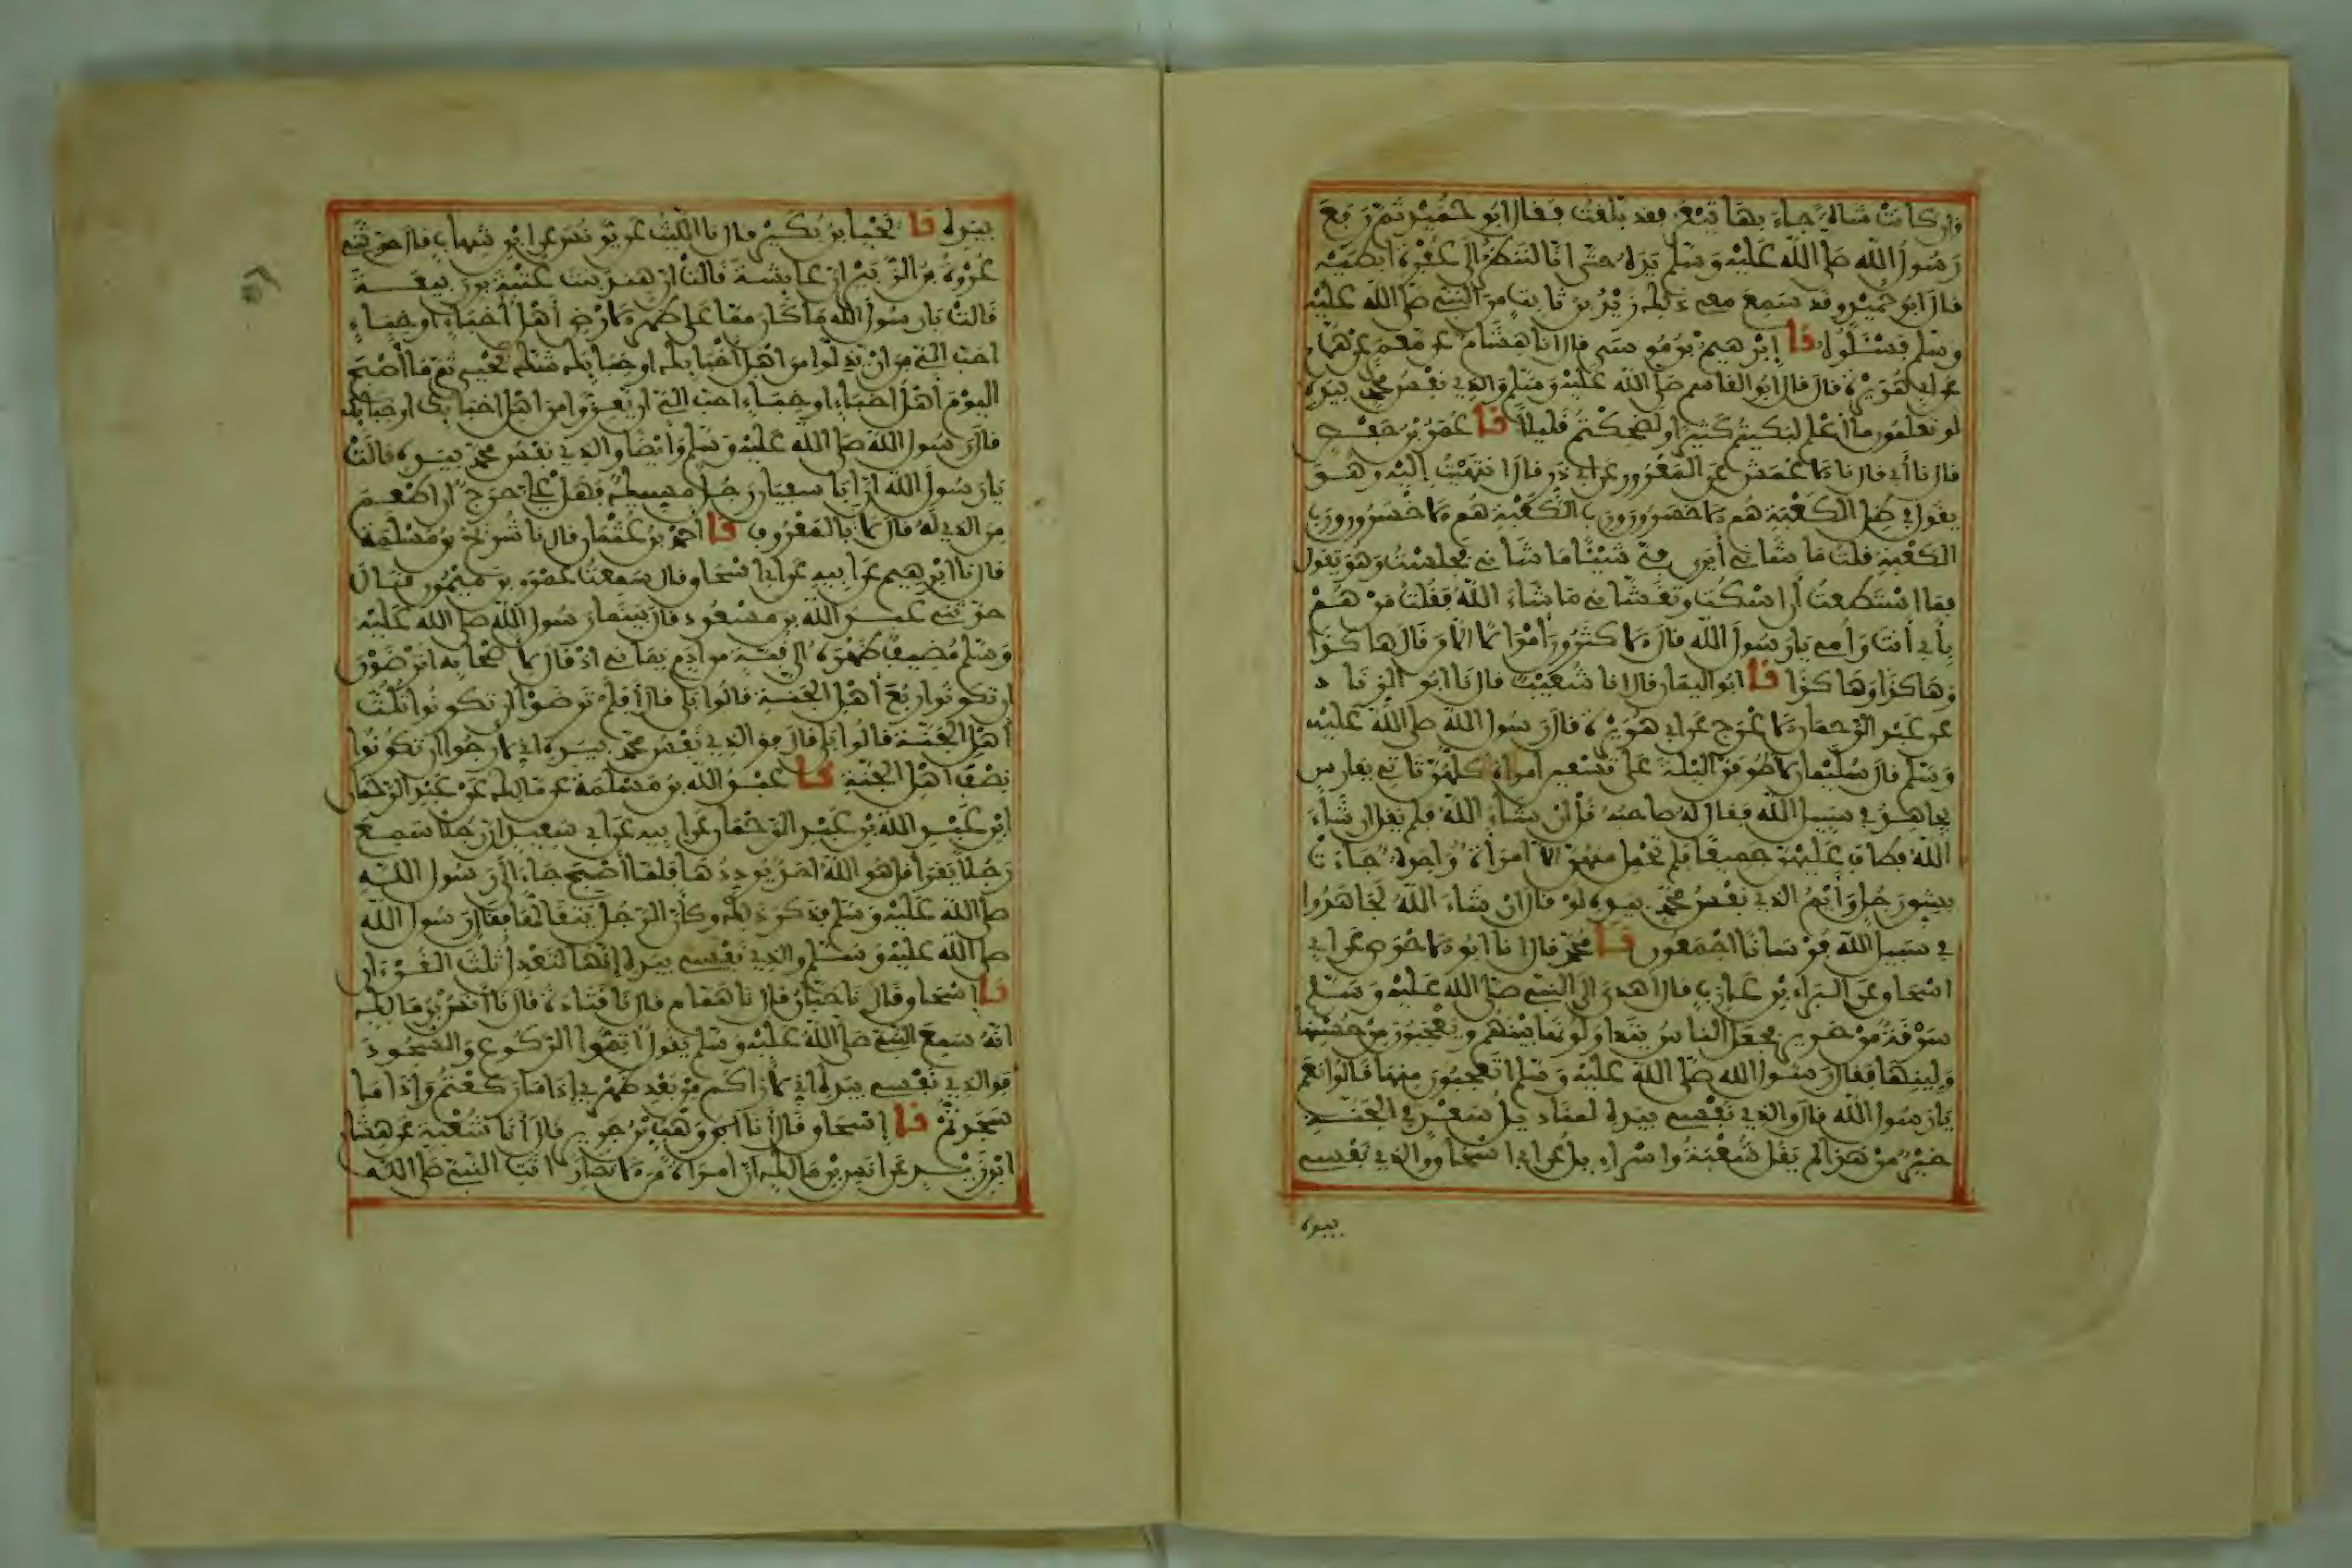 وان كانت شاة جاء بها تيعر فقد بلغت فقال ابو حميد ثم رفع
رسول الله صلى الله عليه وسلم يده حتى انا لننظر الى عفرة ابطيه
قال ابو حميد وقد سمع معي ذلك زيد بن ثابت من النبي صلى الله عليه
وسلم فسلوه نا إبرهيم بن موسى قال انا هشام عن معمر عن همام
عن ابي هريرة قال قال ابو القاسم صلى الله عليه وسلم والذي نفس محمد بيده
لو تعلمون ما اعلم لبكيتم كثيرا ولضحكتم قليلا نا عمر بن حفص
قال نا أبي قال نا الاعمش عن المعرور عن ابي ذر قال انتهيت إليه وهو
يقول في ظل الكعبة هم الاخسرون ورب الكعبة هم الاخسرون ورب
الكعبة قلت ما شاني أيرى في شيئا ما شاني فجلست وهو يقول
فما استطعت أن اسكت وتغشاني ما شاء الله فقلت من هم
بأبي أنت وأمي يا رسول الله قال الاكثرون أموالا الا من قال هاكذا
وهاكذا وهاكذا نا ابو اليمان قال انا شعيب قال نا ابو الزناد
عن عبد الرحمان الاعرج عن ابي هريرة قال رسول الله صلى الله عليه
وسلم قال سليمان لاطوفن اليلة على تسعين امراة كلهن تاتي بفارس
يجاهد في سبيل الله فقال له صاحبه قل ان شاء الله فلم يقل ان شاء
الله فطاف عليهن جميعا فلم تحمل منهن الا امرأة واحدة جاءت
بشق رجل وأيم الذي نفس محمد بيده لو قال ان شاء الله لجاهدوا
في سبيل الله فرسانا اجمعون نا محمد قال نا ابو الاحوص عن ابي
اسحاق عن البراء بن عازب قال اهدي الى النبي صلى الله عليه وسلم
سرقة من حرير فجعل الناس يتداولونها بينهم ويعجبون من حسنها
ولينها فقال رسول الله صلى الله عليه وسلم اتعجبون منها قالوا نعم
يا رسول الله قال والذي نفسي بيده لمناديل سعد في الجنة
خير من هذا لم يقل شعبة واسراءيل عن ابي اسحاق والذي نفسي
بيده
بيده نا يحيا بن بكير قال نا الليث عن يونس عن ابن شهاب قال حدثني
عروة بن الزبير ان عايشة قالت ان هند بنت عتبة بن ربيعة
قالت يا رسول الله ما كان مما على ظهر الارض أهل أخباء او خباء
احب الي من ان يذلوا من اهل أخبايك او خبايك شك يحيى ثم ما أصبح
اليوم أهل اخباء او خباء احب الي ان يعزوا من اهل اخبايك او خبايك
قال رسول الله صلى الله عليه وسلم وأيضا والذي نفس محمد بيده قالت
يا رسول الله ان ابا سفيان رجل مسيك فهل علي حرج ان اطعم
من الذي له قال لا بالمعروف نا احمد بن عثمان قال نا شريح بن مسلمة
قال نا ابرهيم عن ابيه عن ابي اسحاق قال سمعت عمرو بن ميمون قال
حدثني عبد الله بن مسعود قال بينما رسول الله صلى الله عليه
وسلم مضيف ظهره الى قبة من ادم يماني اذ قال لاصحابه اترضون
ان تكونوا ربع أهل الجنة قالوا بلى قال أفلم ترضوا ان تكونوا ثلث
أهل الجنة قالوا بلى قال فوالذي نفس محمد بيده اني لارجوا ان تكونوا
نصف اهل الجنة نا عبد الله بن مسلمة عن مالك عن عبد الرحمان
ابن عبد الله بن عبد الرحمان عن ابيه عن ابي سعيد ان رجلا سمع
رجلا يقرا قل هو الله احد يرددها فلما أصبح جاء الى رسول الله
صلى الله عليه وسلم فذكر ذلك وكأن الرجل يتقالها فقال رسول الله
صلى الله عليه وسلم والذي نفسي بيده إنها لتعدل ثلث القرءان
نا اسحاق قال نا حبان قال نا همام قال نا قتادة قال نا أنس بن مالك
انه سمع النبي صلى الله عليه وسلم يقول اتموا الركوع والسجود
فوالذي نفسي بيده اني لاراكم من بعد ظهري إذا ما ركعتم وإذا ما
سجدتم نا إسحاق قال أنا ابو وهب بن جرير قال أنا شعبة عن هشام
ابن زيد عن انس بن مالك ان امراة من الانصار اتت النبي صلى الله